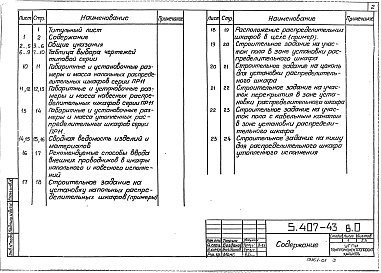 2
Лист Стр. Наименование Примечание
1 Титульный лист
1 2 Содержание
2..5 3..6 Общие указания
6..9 7..10 Таблица выбора чертежей
типовой серии
10 11 Габаритные и установочные раз-
меры и масса напольных распреде-
лительных шкафов серии ПРН
11,12 12,13 Габаритные и установочные раз-
меры и масса навесных распре-
делительных шкафов серии ПРН
13 14 Габаритные и установочные раз-
меры и масса утопленных рас-
пределительных шкафов серии
ПРН
14,15 15,16 Сводная ведомость изделий и
материалов
16 17 Рекомендуемые способы ввода
внешних проводников в шкафы
напольного и навесного исполне-
ний
17 18 Строительное задание на
установку напольных распре-
делительных шкафов (примеры)
Лист Стр. Наименование Примечание
18 19 Расположение распределительных
шкафов в цехе (пример).
19 20 Строительное задание на учас-
ток пола в зоне установки рас-
пределительного шкафа
20 21 Строительное задание на цоколь
для установки распределитель-
ного шкафа
21 22 Строительное задание на учас-
ток перекрытия в зоне уста-
новки распределительного шкафа
22 23 Строительное задание на учас-
ток пола с кабельным каналом
в зоне установки распредели-
тельного шкафа
23 24 Строительное задание на нишу
для распределительного шкафа
утопленного исполнения
5.407-43 в.0
Содержание